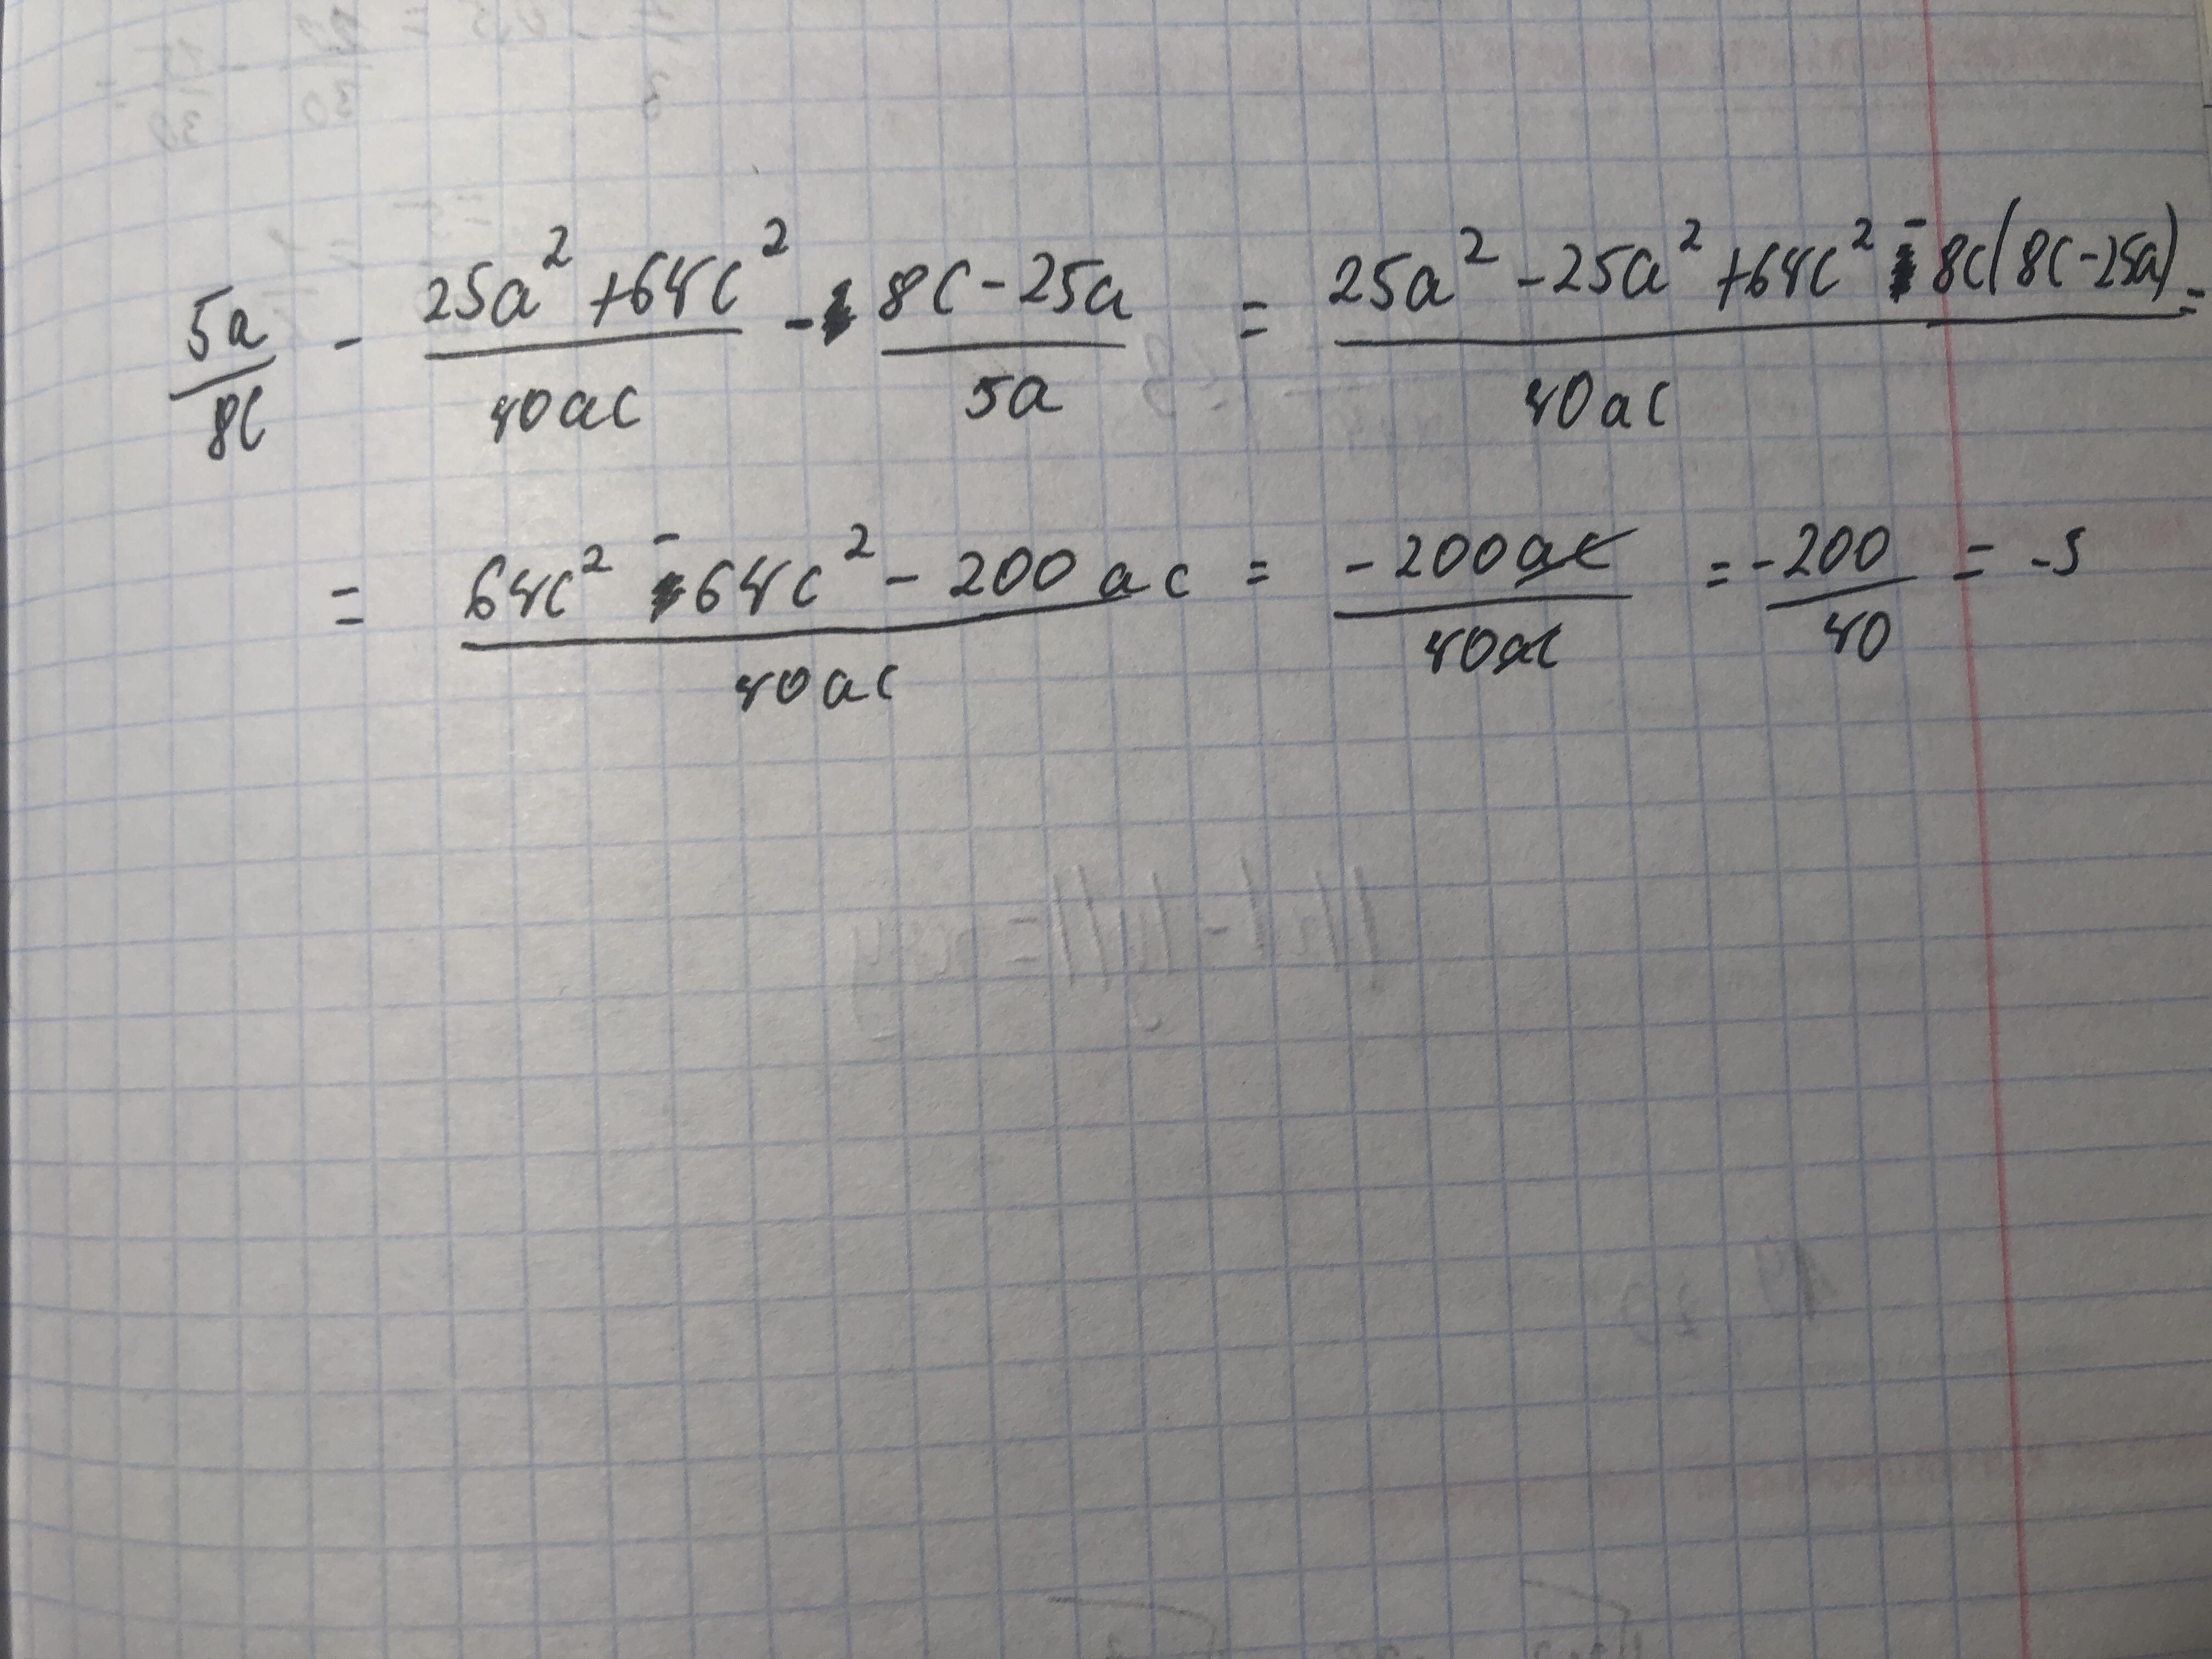 5a/8c - (25a² + 64c²)/40ac - (8c - 25a)/5a = (25a² - 25a² + 64c² - 8c(8c - 25a))/40ac =
= (64c² - 64c² - 200ac)/40ac = -200ac/40ac = -200/40 = -5